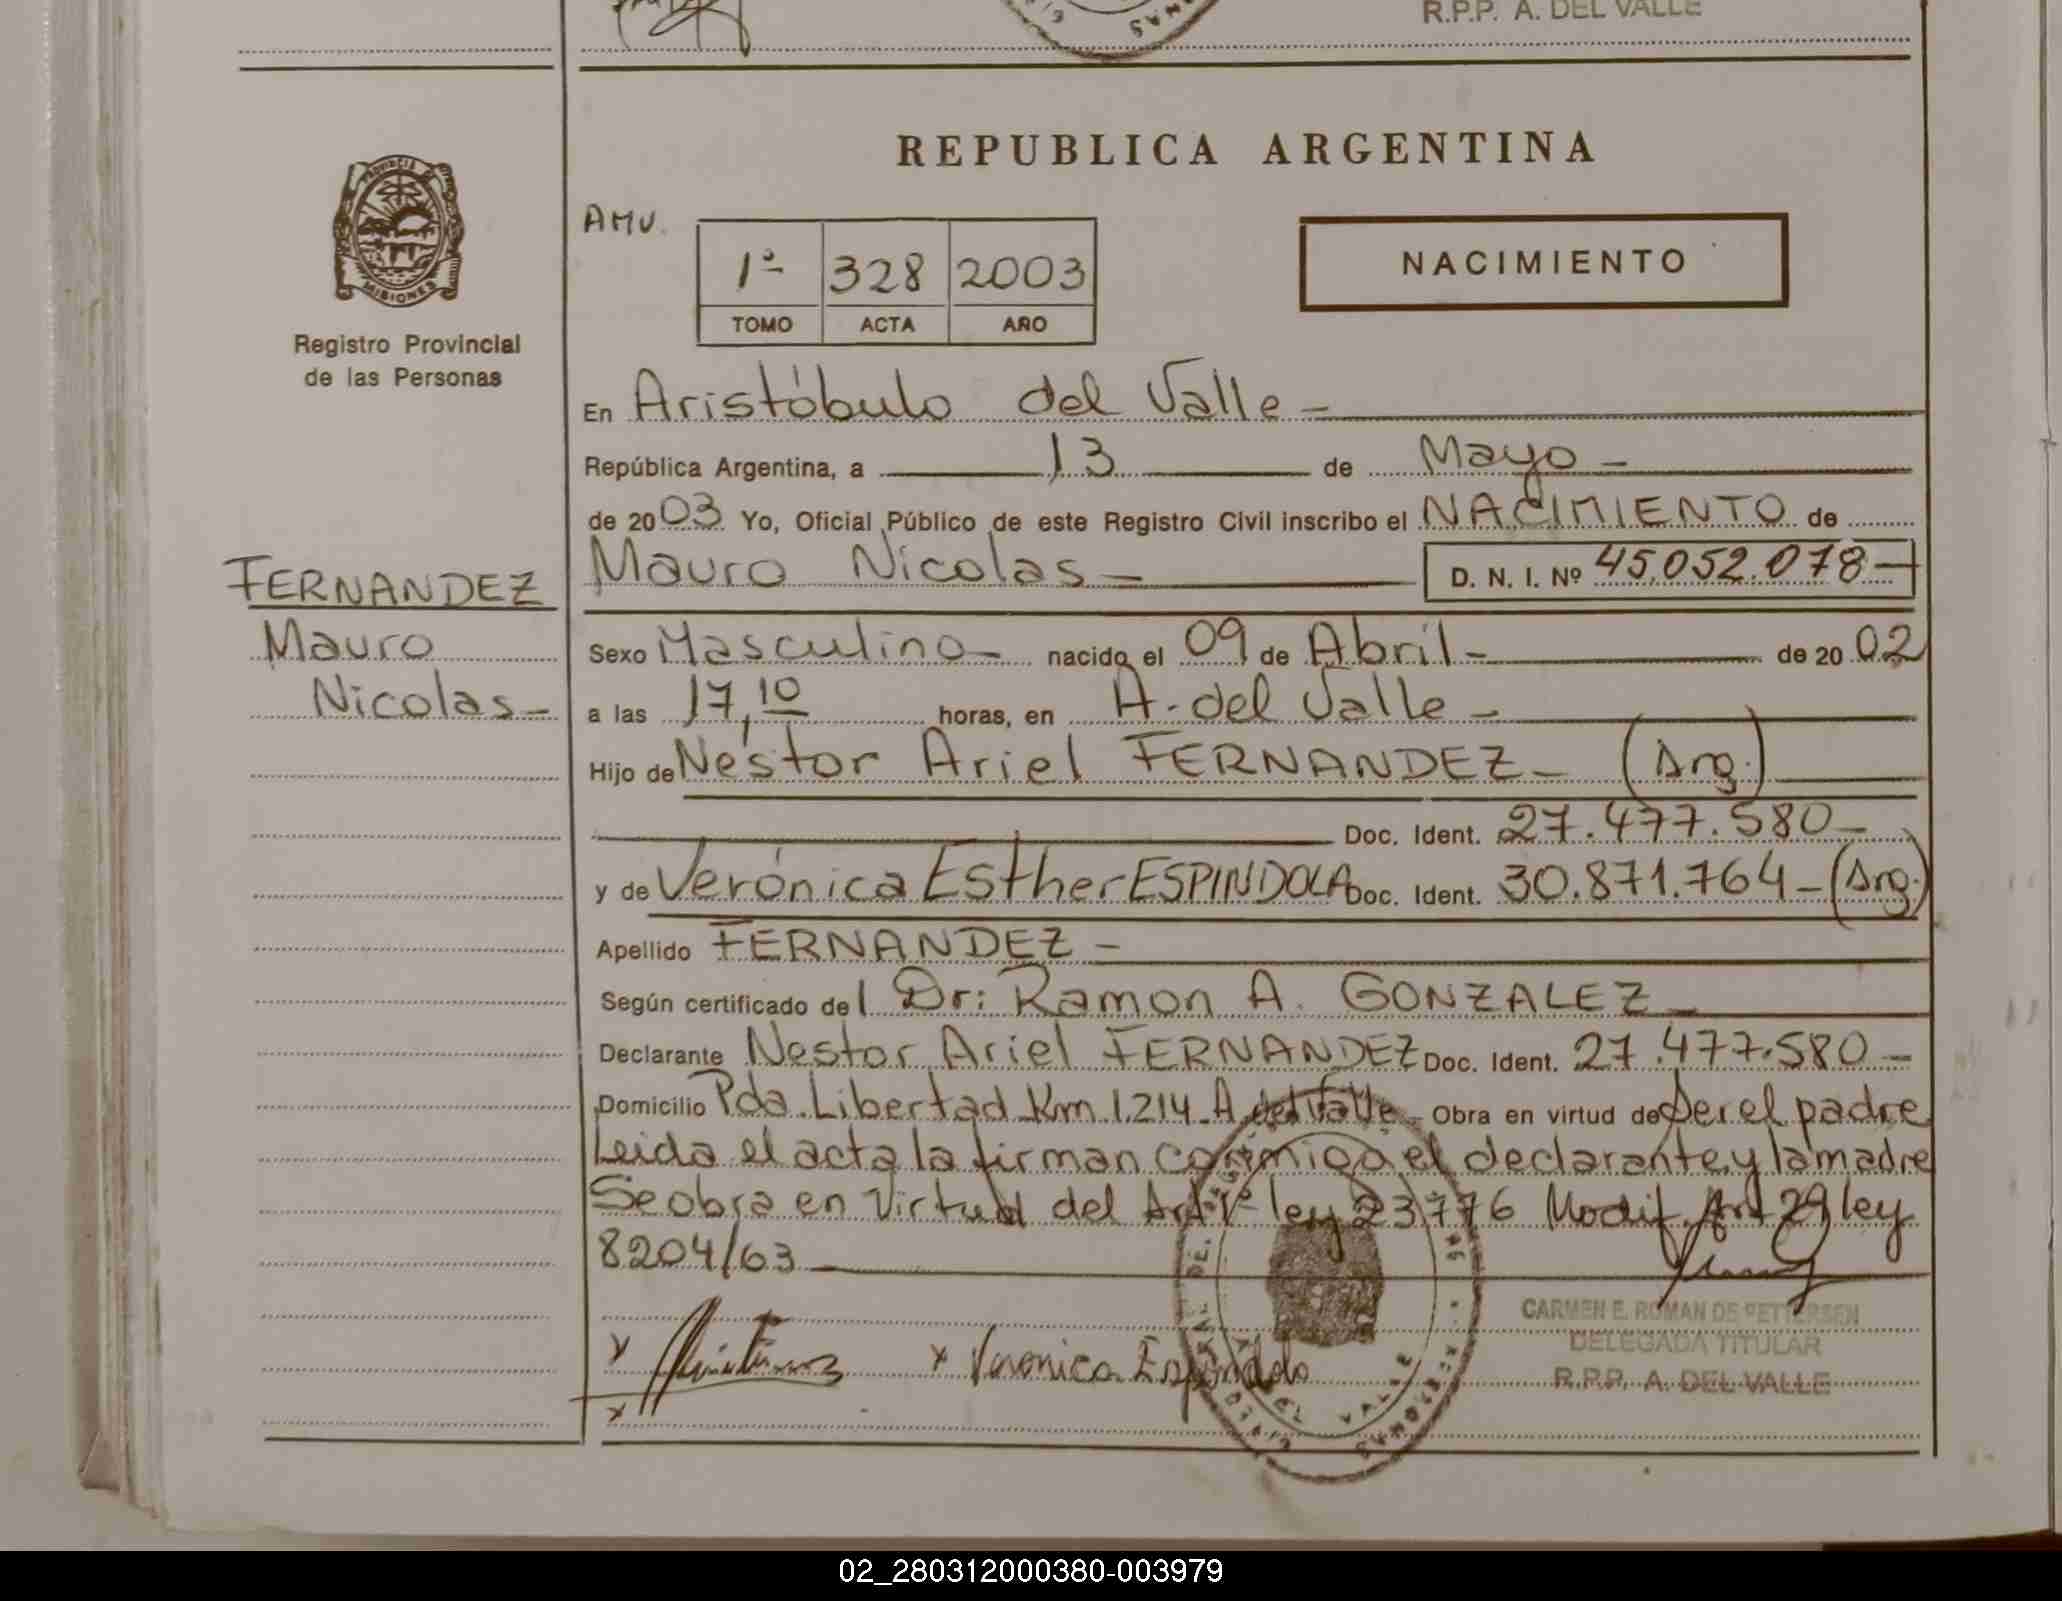 R.P.P. A. DEL VALLE
REPUBLICA ARGENTINA
PROVINCIA DE
MISIONES
Registro Provincial
de las Personas
AMU.
1º 328 2003
TOMO ACTA AÑO
NACIMIENTO
En Aristóbulo del Valle -
República Argentina, a 13 de Mayo -
de 2003 Yo, Oficial Público de este Registro Civil inscribo el NACIMIENTO de
FERNANDEZ
Mauro
Nicolas -
Mauro Nicolas - D. N. I. Nº 45.052.078-
Sexo Masculino - nacido el 09 de Abril - de 2002
a las 17,10 horas, en A. del Valle -
Hijo de Néstor Ariel FERNANDEZ - (Arg.)
Doc. Ident. 27.477.580-
y de Verónica Esther ESPINDOLA Doc. Ident. 30.871.764 - (Arg.)
Apellido FERNANDEZ -
Según certificado del Dr: Ramon A. GONZALEZ -
Declarante Nestor Ariel FERNANDEZ Doc. Ident. 27.477.580 -
Domicilio Pda. Libertad Km 1.214 A. del Valle - Obra en virtud de Ser el padre
Leida el acta la firman conmigo el declarante y la madre
Se obra en Virtud del Art 1º ley 23776 Modif. Art 29 ley
8204/63
x x Veronica Espindola
x
CARMEN E. ROMAN DE PETTERSEN
DELEGADA TITULAR
R.P.P. A. DEL VALLE
02_280312000380-003979